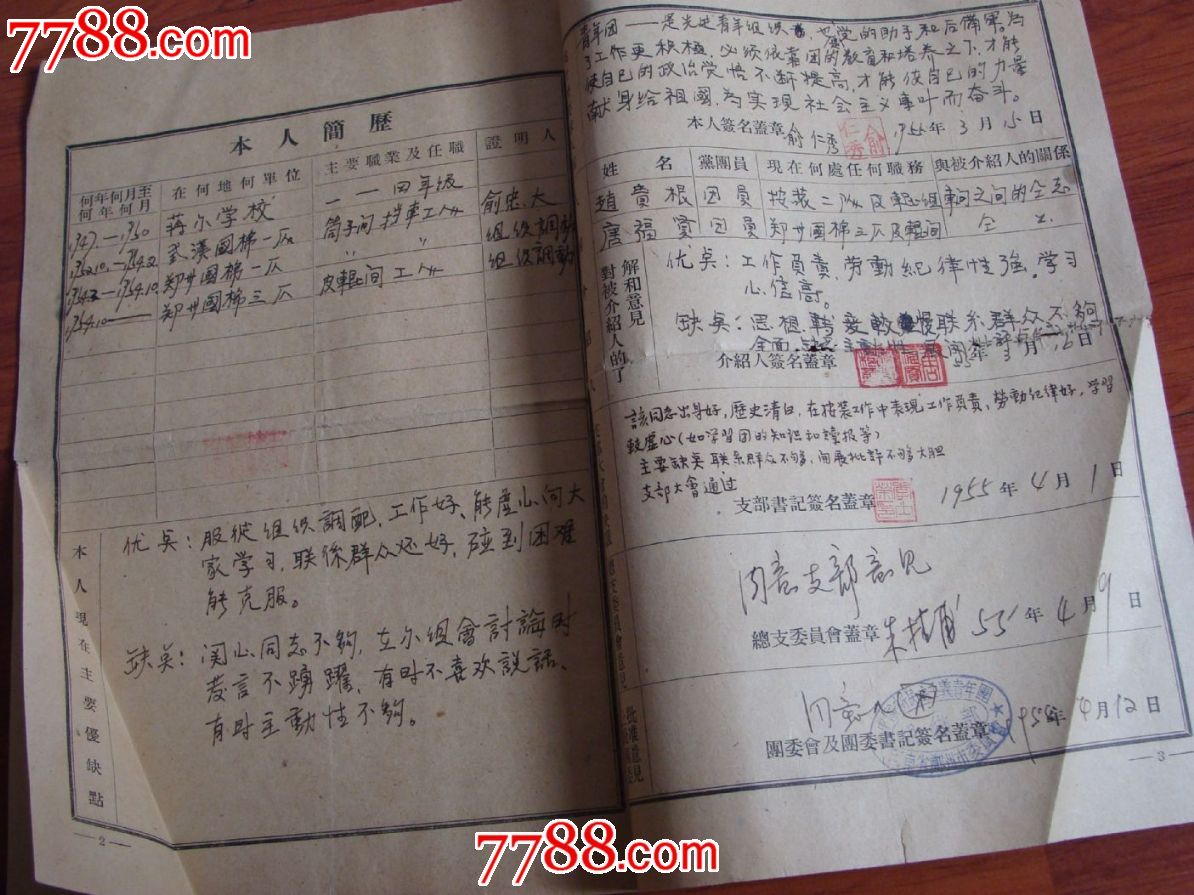 7788.com
7788.com
本人簡歷
何年何月至何年何月 在何地何單位 主要職業及任職 證明人
1947.—1950 蒋小学校 一 — 四年级 俞忠大
武漢國棉一厂 筒子间挡車工人 组织調動
1954.10 郑州國棉一厂 〃 组织調動
1954.10— 郑州國棉三厂 皮輥间工人
本人現在主要優缺點
优点：服從组织調配，工作好、能虚心向大
家学习，联係群众还好，碰到困难
能克服。
缺点：関心同志不夠，在小组會討論时
发言不踴躍，有时不喜欢説話、
有时主動性不夠。
—2—
青年团——是先进青年组织 党的助手和后備軍。为
了工作更积極 必须依靠团的教育和培养之下，才能
使自己的政治觉悟不断提高，才能使自己的力量
献身给祖國，为实現社会主义事业而奋斗。
本人簽名蓋章 俞仁秀 年3月15日
姓名 黨團員 現在何處任何職務 與被介紹人的關係
趙貴根 团员 按装二队皮輥组 車间之间的仝志
唐福賢 团员 郑州國棉三厂皮輥间 仝 上
對被介紹人的了解和意見
优点：工作負責，劳動纪律性强。学习
心信高。
缺点：思想轉变較慢联系群众不夠
全面，
介紹人簽名蓋章 55年3月16日
該同志出身好，歷史清白，在按装工作中表現工作負責，勞動纪律好，学習
較虚心（如学習团的知识和讀报等）
主要缺点 联系群众不够，開展批評不够大胆
支部大會通过
支部書記簽名蓋章 1955年4月1日
同意支部意見
總支委員會蓋章 55年4月9日
同意入
團委會及團委書記簽名蓋章 1955年4月12日
—3—